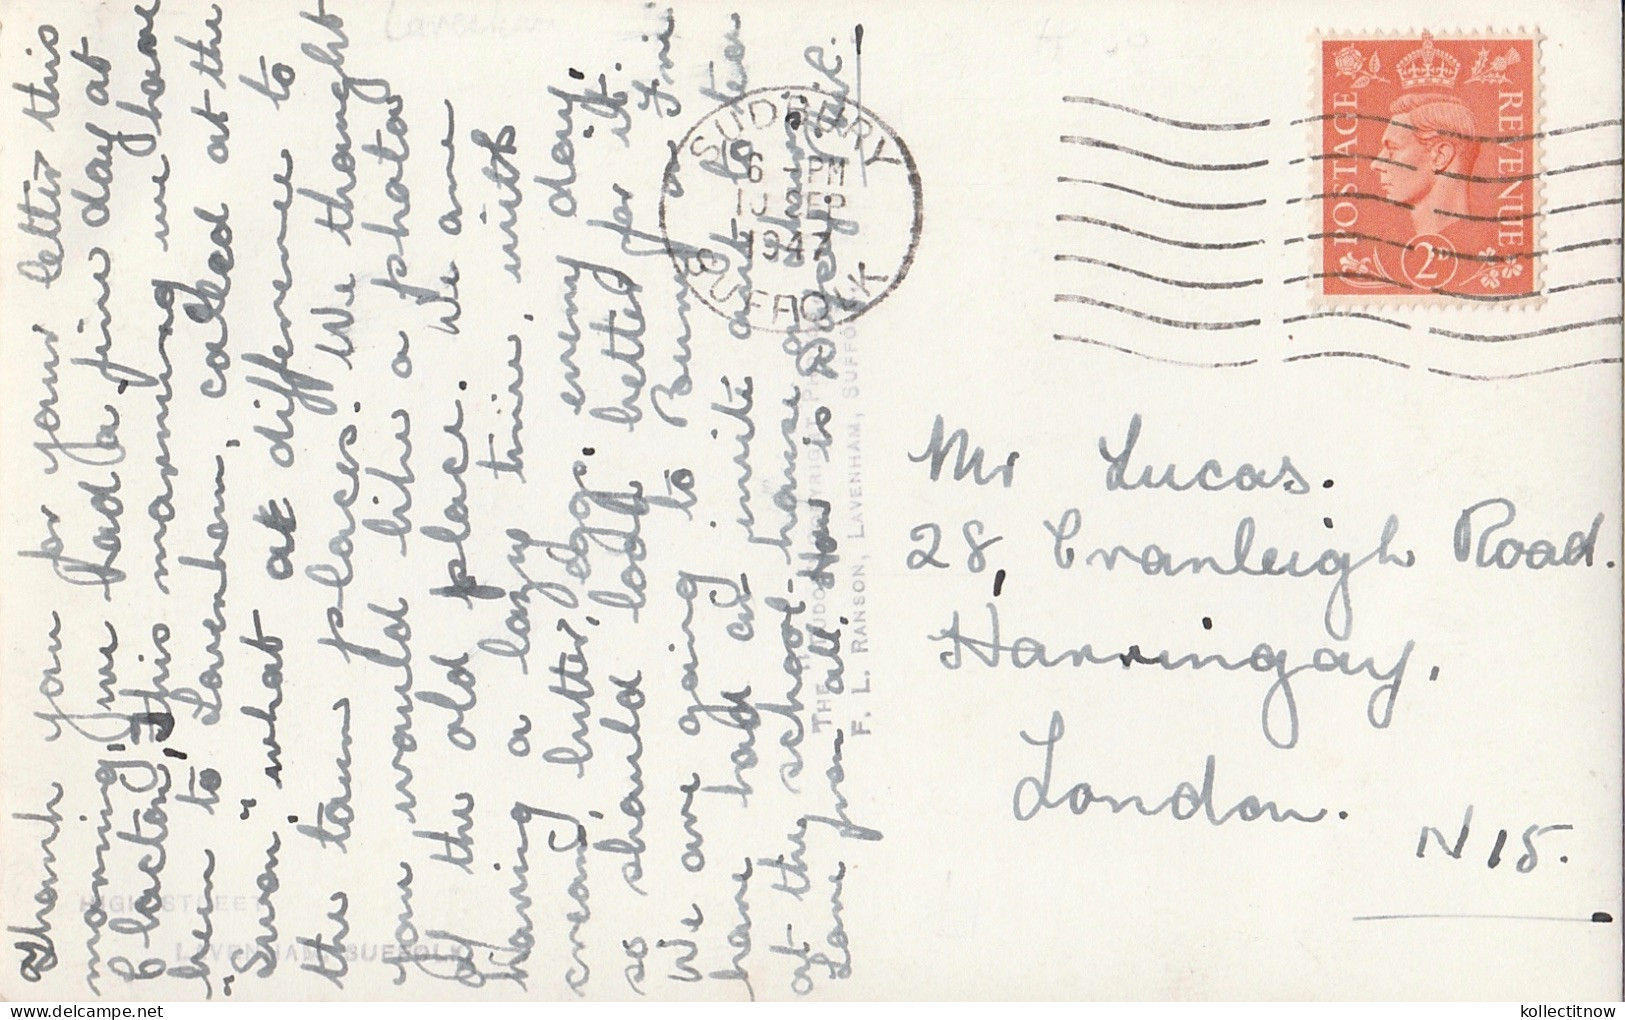 Thank you for your letter this
morning, we had a fine day at
Clacton, this morning we have
been to Lavenham, called at the
"Swan", what a difference to
the town places. We thought
you would like a photo
of the old place. We are
having a lazy time, with
cream, butter, eggs. every day,
so should look better for it.
We are going to Bury on Fri
have had an invite out to tea
at the school-house
Love from all. How is
HIGH STREET
LAVENHAM, SUFFOLK
THE
F. L. RANSON, LAVENHAM, SUFFOLK
SUDBURY
6 PM
10 SEP
1947
SUFFOLK
POSTAGE
REVENUE
2D
Mr Lucas.
28, Cranleigh Road.
Harringay,
London.
N 15.
kollectitnow